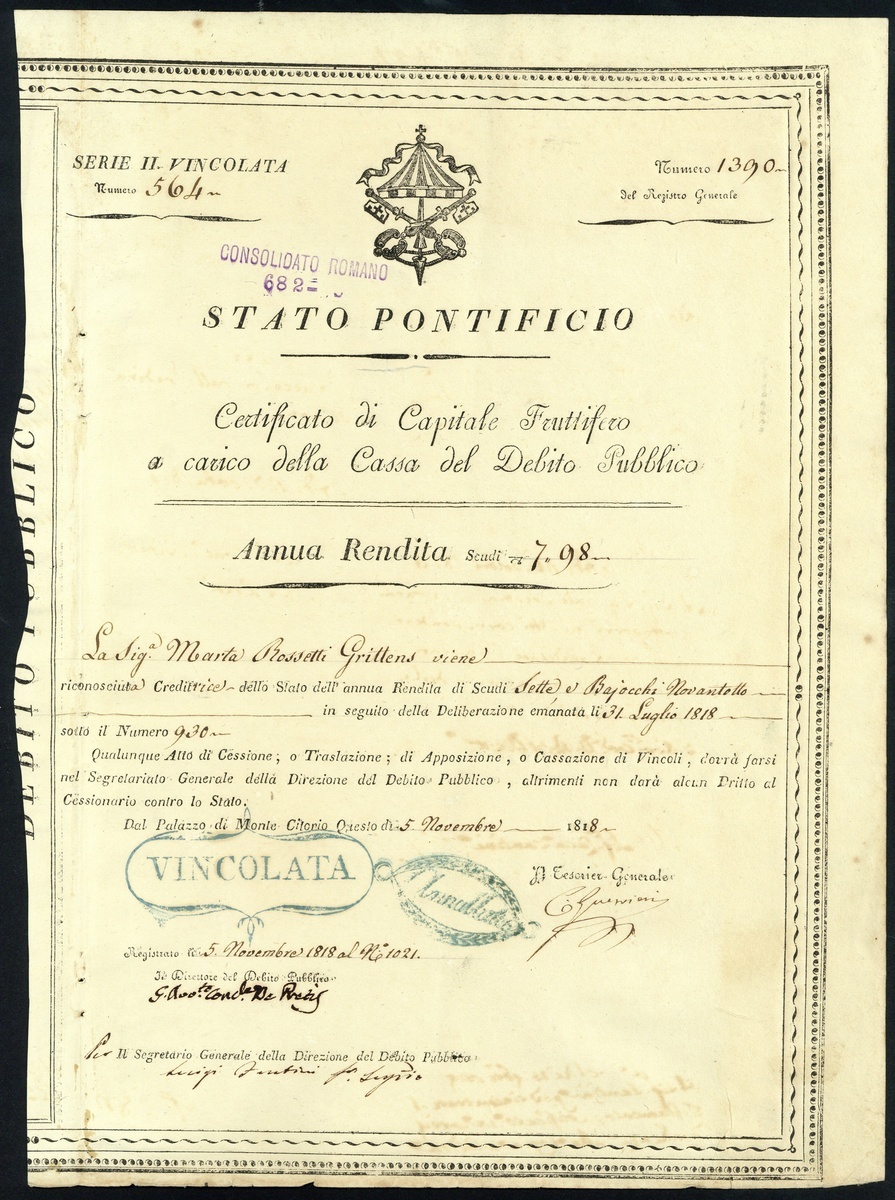 SERIE II. VINCOLATA
Numero 564
Numero 1390
del Registro Generale
CONSOLIDATO ROMANO
682=
STATO PONTIFICIO
Certificato di Capitale Fruttifero
a carico della Cassa del Debito Pubblico
Annua Rendita Scudi 7,,98
La Sig.a Marta Rossetti Grittens viene
riconosciuta Creditrice dello Stato dell'annua Rendita di Scudi Sette e Bajocchi Novantotto
in seguito della Deliberazione emanata li 31. Luglio 1818
sotto il Numero 930
Qualunque Atto di Cessione; o Traslazione; di Apposizione, o Cassazione di Vincoli, dovrà farsi
nel Segretariato Generale della Direzione del Debito Pubblico, altrimenti non darà alcun Dritto al
Cessionario contro lo Stato.
Dal Palazzo di Monte Citorio Questo dì 5. Novembre 1818
VINCOLATA
Annullata
Il Tesorier Generale
Registrato li 5. Novembre 1818 al No. 1021.
Il Direttore del Debito Pubblico
Per Il Segretario Generale della Direzione del Debito Pubblico
Luigi
DEBITO PUBBLICO